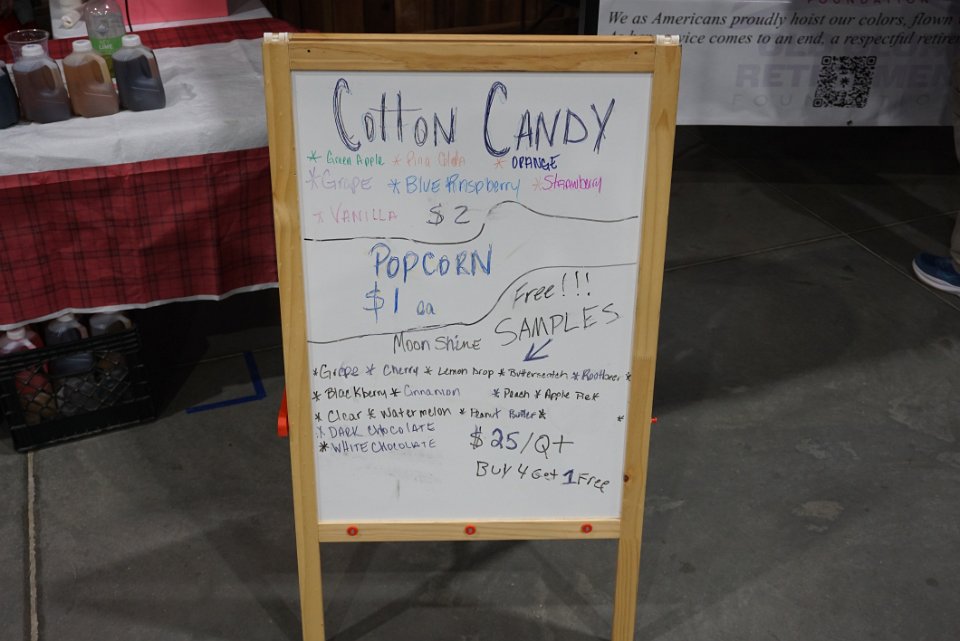 FOUNDATION
We as Americans proudly hoist our colors, flown
service comes to an end, a respectful retire
RETIREMEN
FOUNDATION
LIME
COTTON CANDY
* Green Apple * Pina Colda * ORANGE
* Grape * BLUE Raspberry * Strawberry
* VANILLA $2
POPCORN
$1 ea
Free!!!
SAMPLES
Moon Shine
* Grape * Cherry * Lemon Drop * Butterscotch * Rootbeer *
* Blackberry * Cinnamon * Peach * Apple Pie *
* Clear * Watermelon * Peanut Butter *
* DARK CHOCOLATE
* WHITE CHOCOLATE
$25/Qt
Buy 4 Get 1 Free